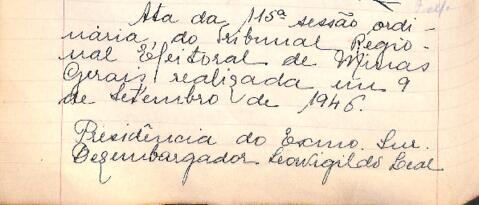 Ata da 115ª sessão ordi-
nária, do Tribunal Regio-
nal Eleitoral de Minas
Gerais, realizada em 9
de Setembro de 1946.
Presidência do Exmo. Snr.
Dezembargador Leovigildo Leal